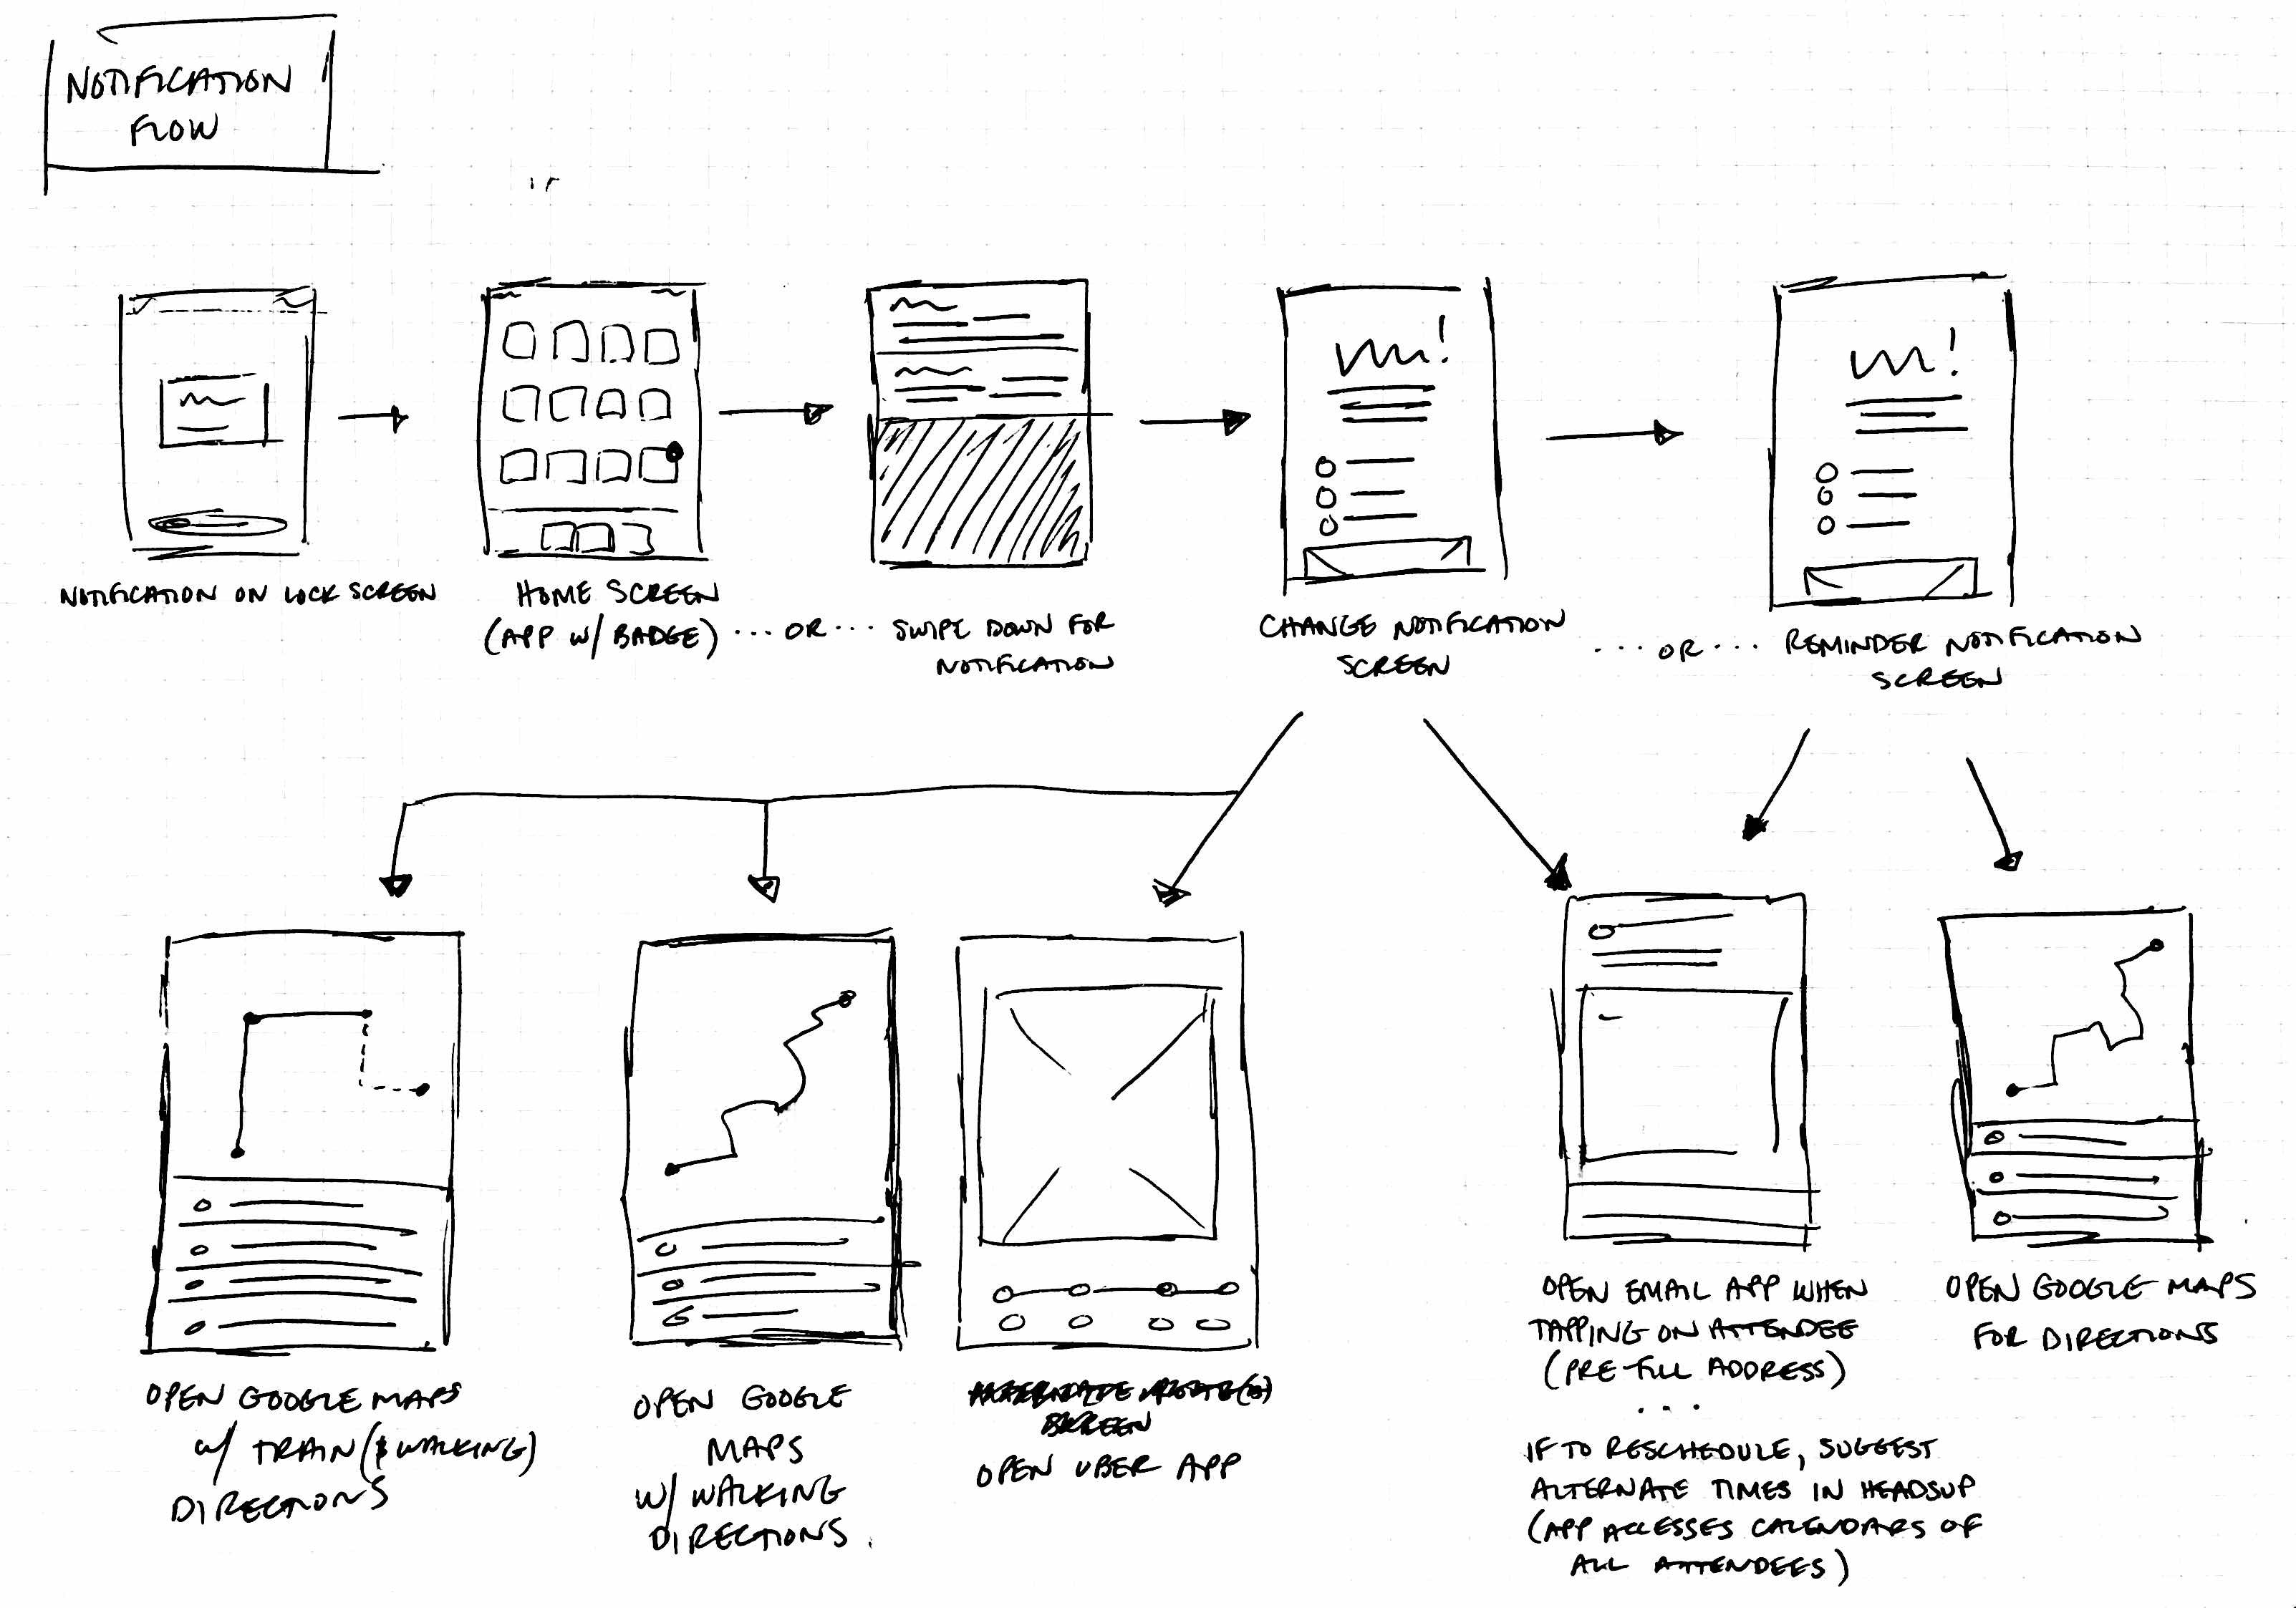 NOTIFICATION
FLOW
NOTIFICATION ON LOCK SCREEN
HOME SCREEN
(APP W/ BADGE)
...OR...
SWIPE DOWN FOR
NOTIFICATION
CHANGE NOTIFICATION
SCREEN
...OR...
REMINDER NOTIFICATION
SCREEN
OPEN GOOGLE MAPS
W/ TRAIN (& WALKING)
DIRECTIONS
OPEN GOOGLE
MAPS
W/ WALKING
DIRECTIONS.
SCREEN
OPEN UBER APP
OPEN EMAIL APP WHEN
TAPPING ON ATTENDEE
(PRE-FILL ADDRESS)
...
IF TO RESCHEDULE, SUGGEST
ALTERNATE TIMES IN HEADSUP
(APP ACCESSES CALENDARS OF
ALL ATTENDEES)
OPEN GOOGLE MAPS
FOR DIRECTIONS